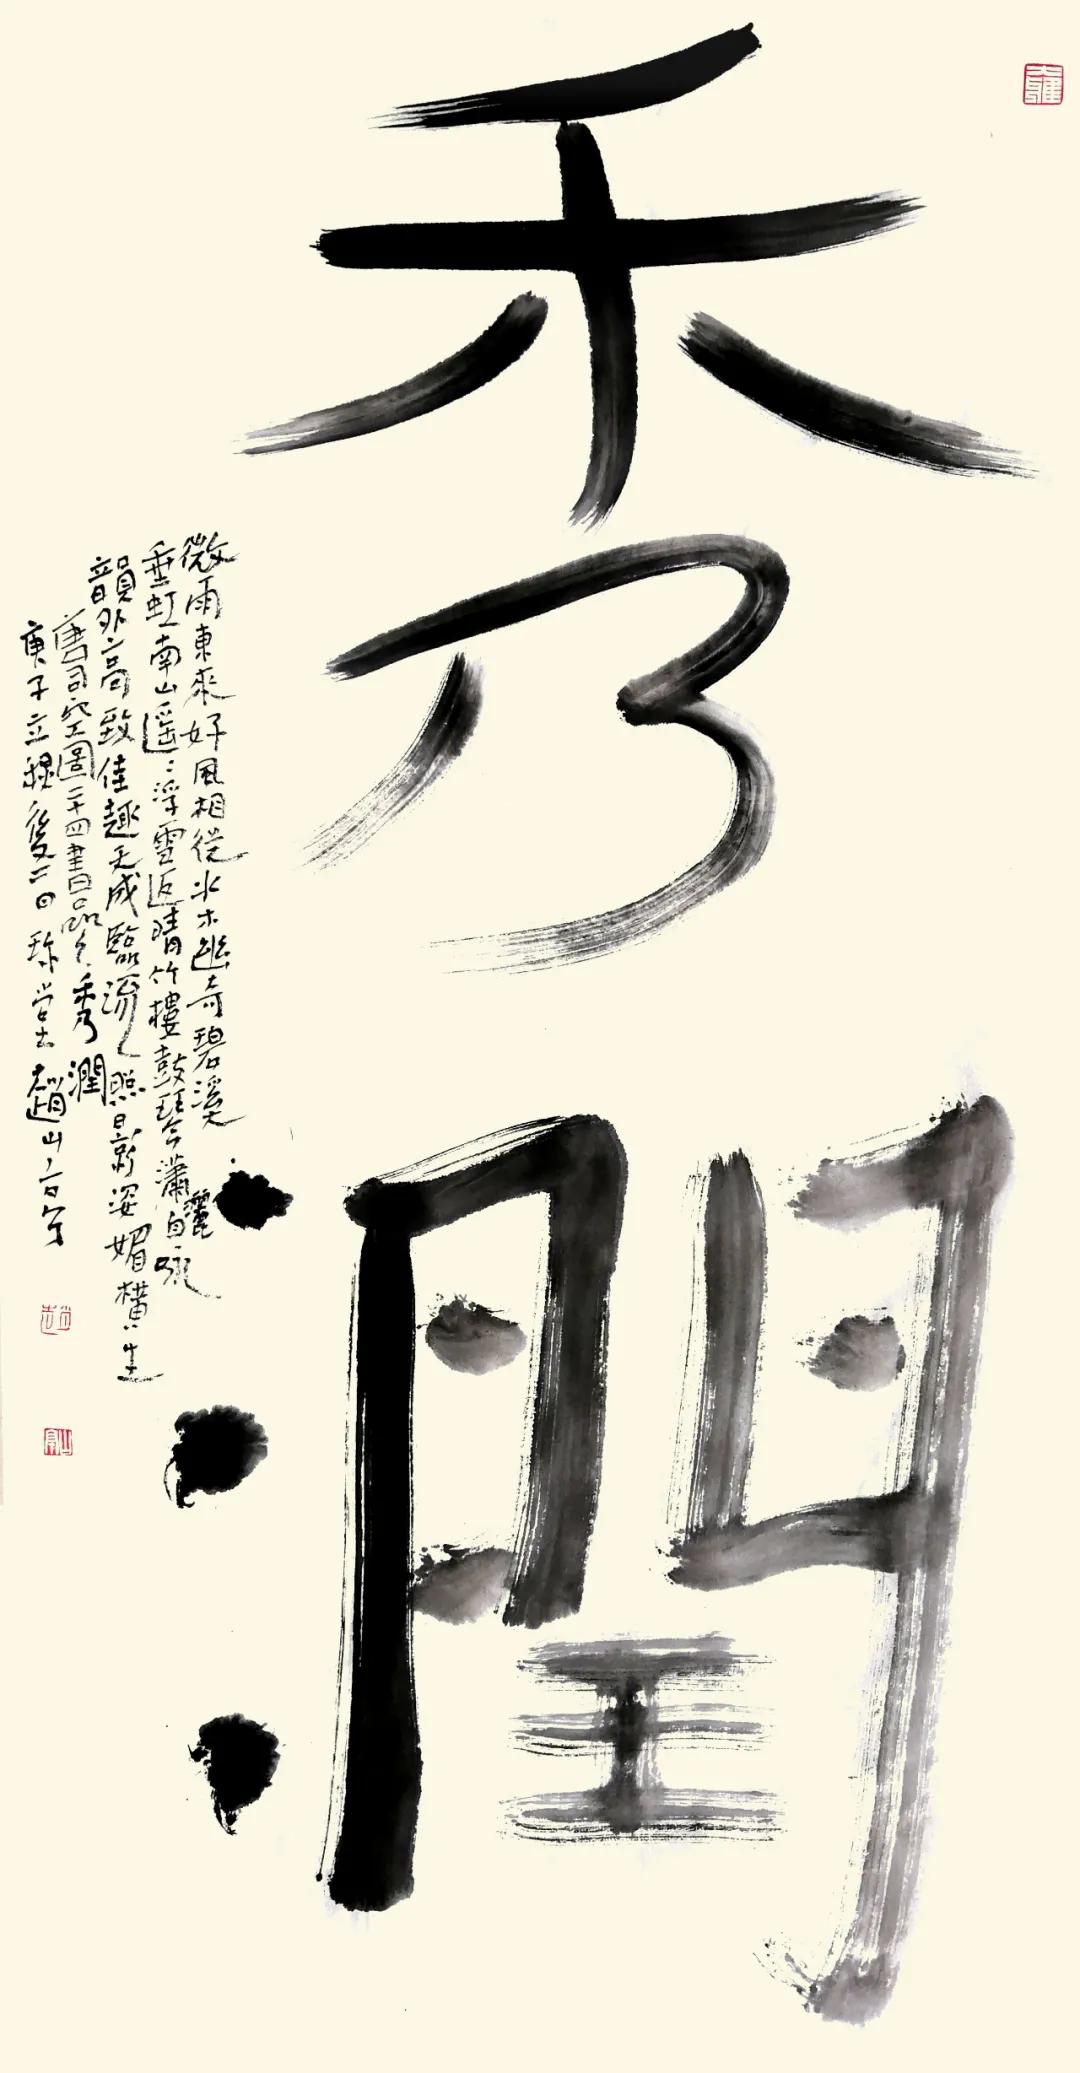 秀潤
微雨東來好風相從水木幽奇碧溪
垂虹南山遥遥浮雲返晴竹樓鼓琴瀟灑自咏
韻外高致佳趣天成臨流照影姿媚横生
唐司空圖二十四書品之秀潤
庚子立穐後二日 堂主趙山亭